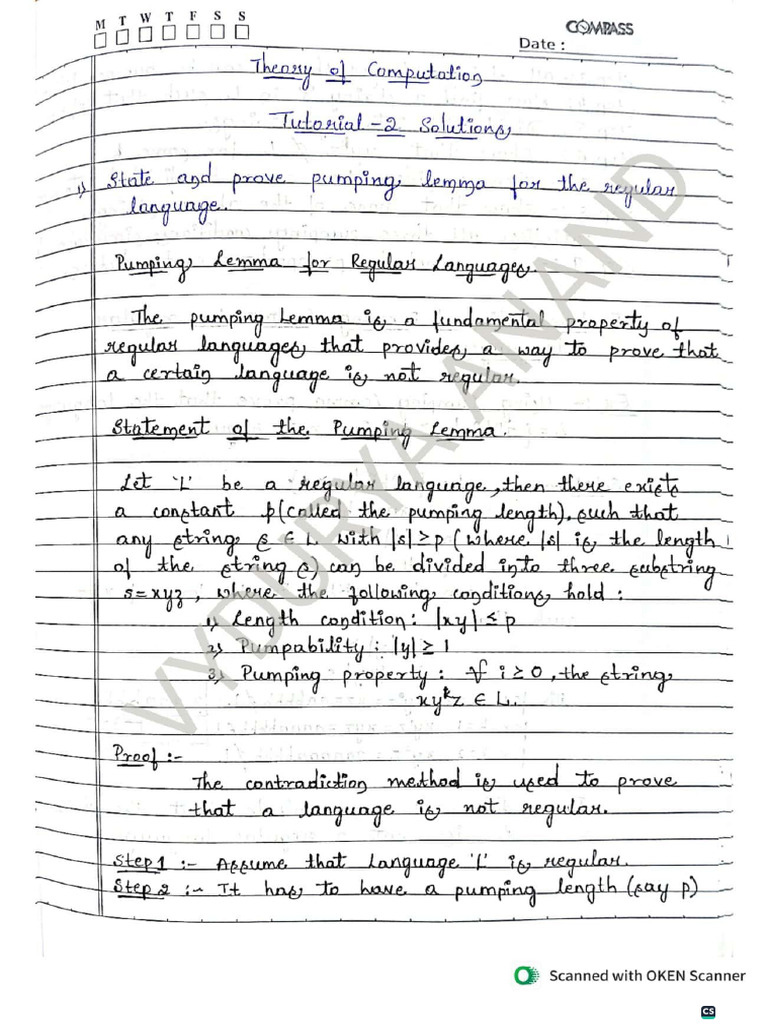 M T W T F S S
COMPASS
Date :
Theory of Computation
Tutorial - 2 Solutions
1) State and prove pumping lemma for the regular
language.
Pumping Lemma for Regular Languages.
The pumping Lemma is a fundamental property of
regular languages that provides a way to prove that
a certain language is not regular.
Statement of the Pumping Lemma.
Let 'L' be a regular language, then there exists
a constant p (called the pumping length), such that
any string s ∈ L with |s| ≥ p (where |s| is the length
of the string s) can be divided into three substring
s = xyz, where the following conditions hold :
1) Length condition : |xy| ≤ p
2) Pumpability : |y| ≥ 1
3) Pumping property : ∀ i ≥ 0, the string
xyᵏz ∈ L.
Proof :-
The contradiction method is used to prove
that a language is not regular.
Step 1 :- Assume that Language 'L' is regular.
Step 2 :- It has to have a pumping length (say p)
VYDURYA ANAND
Scanned with OKEN Scanner
CS